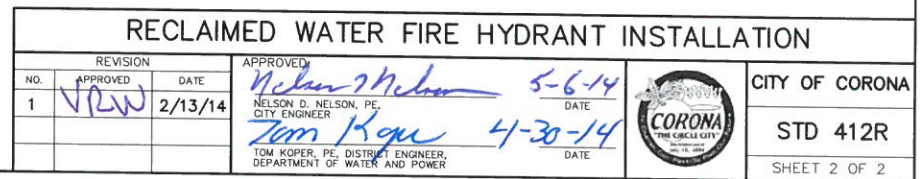 RECLAIMED WATER FIRE HYDRANT INSTALLATION
REVISION
NO. APPROVED DATE
1 VRW 2/13/14
APPROVED:
Nelson D. Nelson 5-6-14
NELSON D. NELSON, PE. DATE
CITY ENGINEER
Tom Koper 4-30-14
TOM KOPER, PE, DISTRICT ENGINEER, DATE
DEPARTMENT OF WATER AND POWER
CORONA
"THE CIRCLE CITY"
CITY OF CORONA
STD 412R
SHEET 2 OF 2